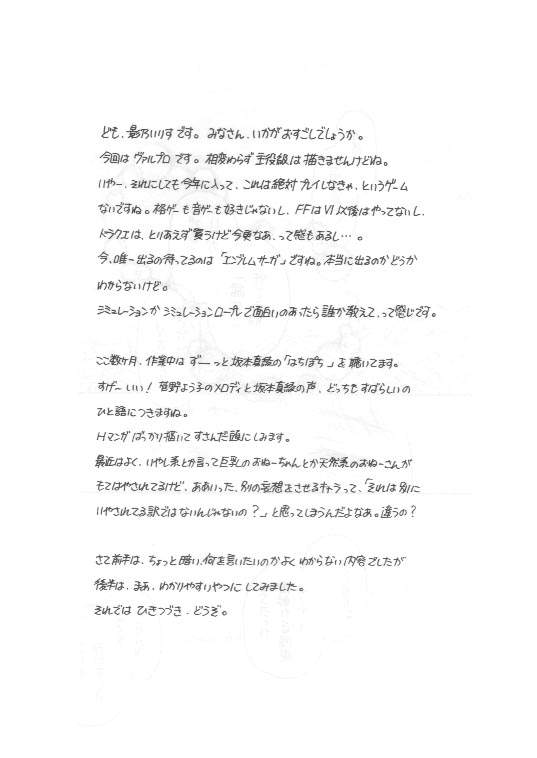 ども、最乃いりすです。みなさん、いかがおすごしでしょうか。
今回はヴァルプロです。相変わらず主役級は描きませんけどね。
いやー、それにしても今年に入って、これは絶対プレイしなきゃ、というゲーム
ないですね。格ゲーも音ゲーも好きじゃないし、FFはVI以後はやってないし、
ドラクエは、とりあえず買うけど今更なあ、って感もあるし…。
今、唯一出るの待ってるのは「エンブレムサーガ」ですね。本当に出るのかどうか
わからないけど。
シミュレーションかシミュレーションロープレで面白いのあったら誰か教えて、って感じです。
ここ数ヶ月、作業中はずーーっと坂本真綾の「はちぽち」を聴いてます。
すげーいい!菅野よう子のメロディと坂本真綾の声、どっちもすばらしいの
ひと語につきますね。
Hマンガばっかり描いてすさんだ頭にしみます。
最近はよく、いやし系とか言って巨乳のおねーちゃんとか天然系のおねーさんが
もてはやされてるけど、ああいった、別の妄想をさせるキャラって、「それは別に
いやされてる訳ではないんじゃないの?」と思ってしまうんだよなあ。違うの?
さて前半は、ちょっと暗い、何を言いたいのかよくわからない内容でしたが
後半は、まあ、わかりやすいやつにしてみました。
それではひきつづき、どうぞ。